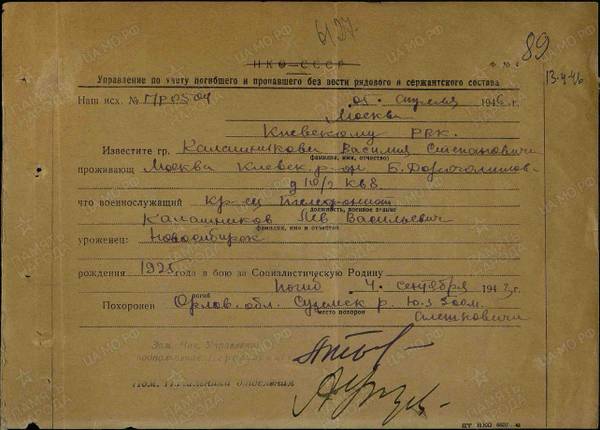 6127
89
НКО-СССР
Ф № 4
Управление по учету погибшего и пропавшего без вести рядового и сержантского состава
13.4.46
Наш исх. №
05. апреля 1946 г.
Москва
Киевскому РВК.
Известите гр. Калашникова Василия Степановича
фамилия, имя, отчество)
проживающ. Москва Киевск. р-он Б. Дорогомилов-
д 10/2 кв 8
что военнослужащий Кр-ец телефонист
должность, военное звание
Калашников Лев Васильевич
фамилия, имя и отчество
уроженец: Новосибирск
рождения 1925 года в бою за Социалистическую Родину
погиб 4. сентября 1943 г.
погиб
Похоронен Орлов. обл. Суземск р. Ю.З
место похорон
Алешковичи
Зам. Нач. Управления
Пом. Начальника отделения